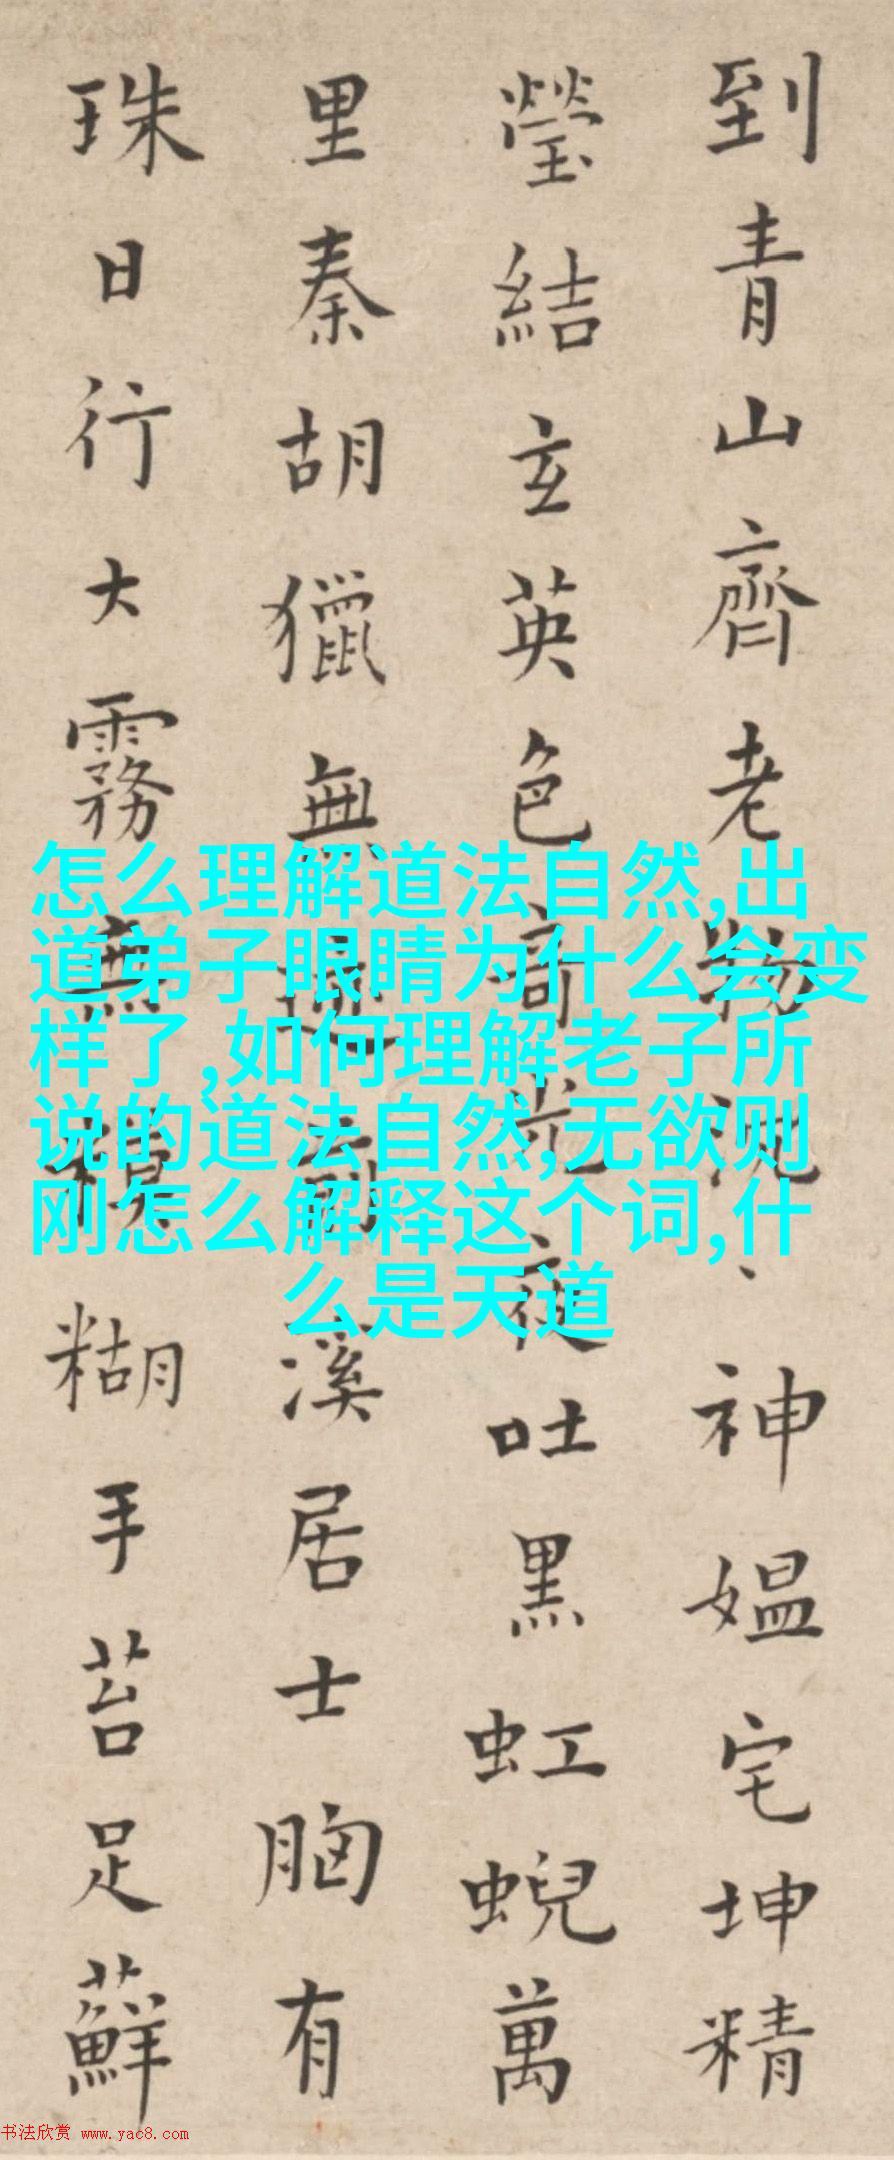 到青山齊老物、神媼宅坤精
瑩結玄英色奇光夜吐黑虹蜺萬
里秦胡獵無溪居士胸有
珠日行大霧無模糊手苔足蘚
怎么理解道法自然,出
道弟子眼睛为什么会变
样了,如何理解老子所
说的道法自然,无欲则
刚怎么解释这个词,什
么是天道
书法欣赏 www.yac8.com